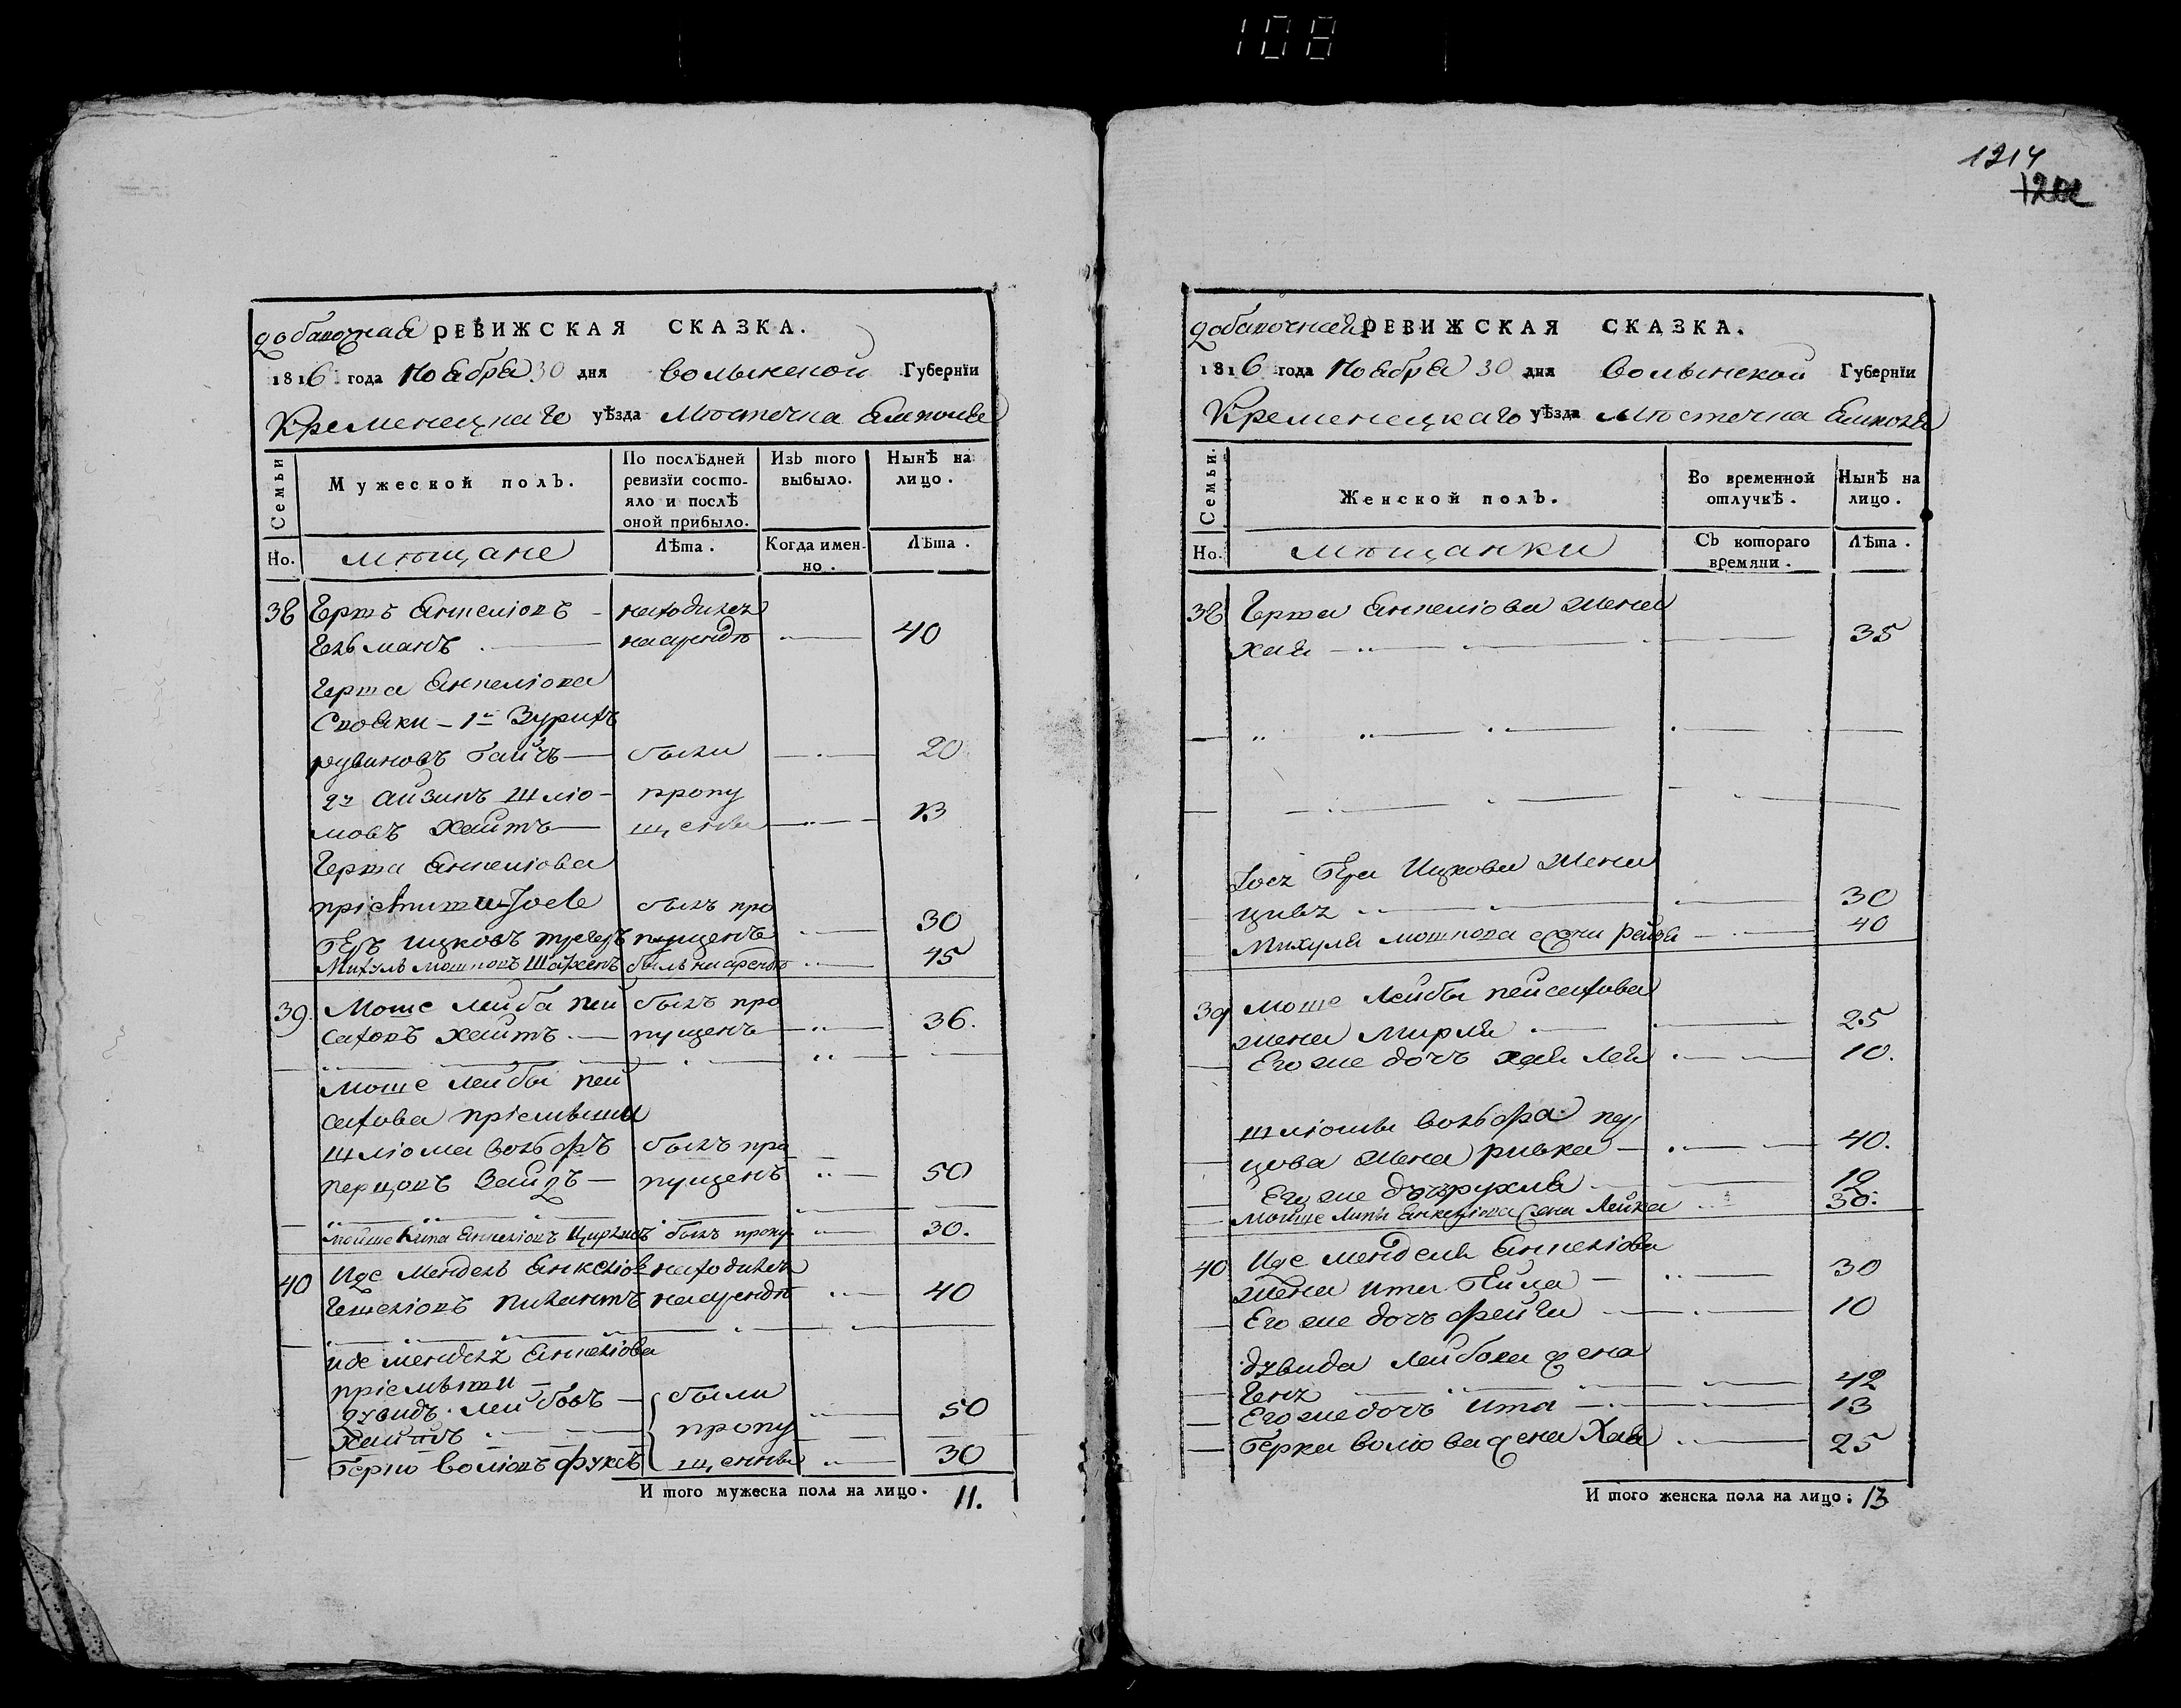 108
1214
добавочная РЕВИЖСКАЯ СКАЗКА.
1816 года Ноября 30 дня волынской Губернїи
Кременецкаго уѣзда Мѣстечка Ямполя
Семьи
Мужеской полъ.
По послѣдней ревизїи состояло и послѣ оной прибыло.
Изъ того выбыло.
Нынѣ на лицо.
Но.
мѣщане
Лѣта.
Когда именно.
Лѣта.
38 Гершъ Янкелiовъ находился
Гельманъ на арендѣ 40
Герша Янкелiова
Свояки - 1й Зурихъ
рувиновъ были 20
2й Айзикъ Шлiо- пропу
мовъ Хаитъ щены 13
Герша Янкелiова
Iось былъ про
Беръ ицковъ пущенъ 30
Михуль мошковъ былъ на арендѣ 45
39. Моше лейба пей былъ про
саховъ хаитъ пущенъ 36.
Моше лейбы пей
сахова прiемыши
шлiома вольфъ былъ про
перцовъ Зейдъ пущенъ 50
мойше Янкелiовъ былъ пропу 30.
40 Иде Мендель Янкелiов находился
на арендѣ 40
иде мендель Янкелiова
прiемыши
дувидъ лейбовъ были 50
пропу
Герко волiовъ фуксъ щенны 30
И того мужеска пола на лицо. 11.
добавочная РЕВИЖСКАЯ СКАЗКА.
1816 года Ноября 30 дня Волынской Губернїи
Кременецкаго уѣзда Мѣстечка Ямполя
Семьи.
Женской полъ.
Во временной отлучкѣ.
Нынѣ на лицо.
Но.
мѣщанки
Съ котораго времяни.
Лѣта.
38 Герша Янкелiова жена
хая 35
Iось Бера Ицкова жена
цивъ 30
Михуля мошкова 40
39 моше Лейбы пейсахова
жена Мирля 25
Его же дочь хая лея 10.
шлiомы вольфа пер
цова жена ривка 40.
Его же дочь рухля 12
мойше Липы Янкелiова жена Лейка 30.
40 Иде менделя Янкелiова
жена ита Бейла 30
Его же дочь фейга 10
дувида лейбова жена
Геня 42
Его же дочь ита 13
Герки волiова жена Хая 25
И того женска пола на лицо: 13